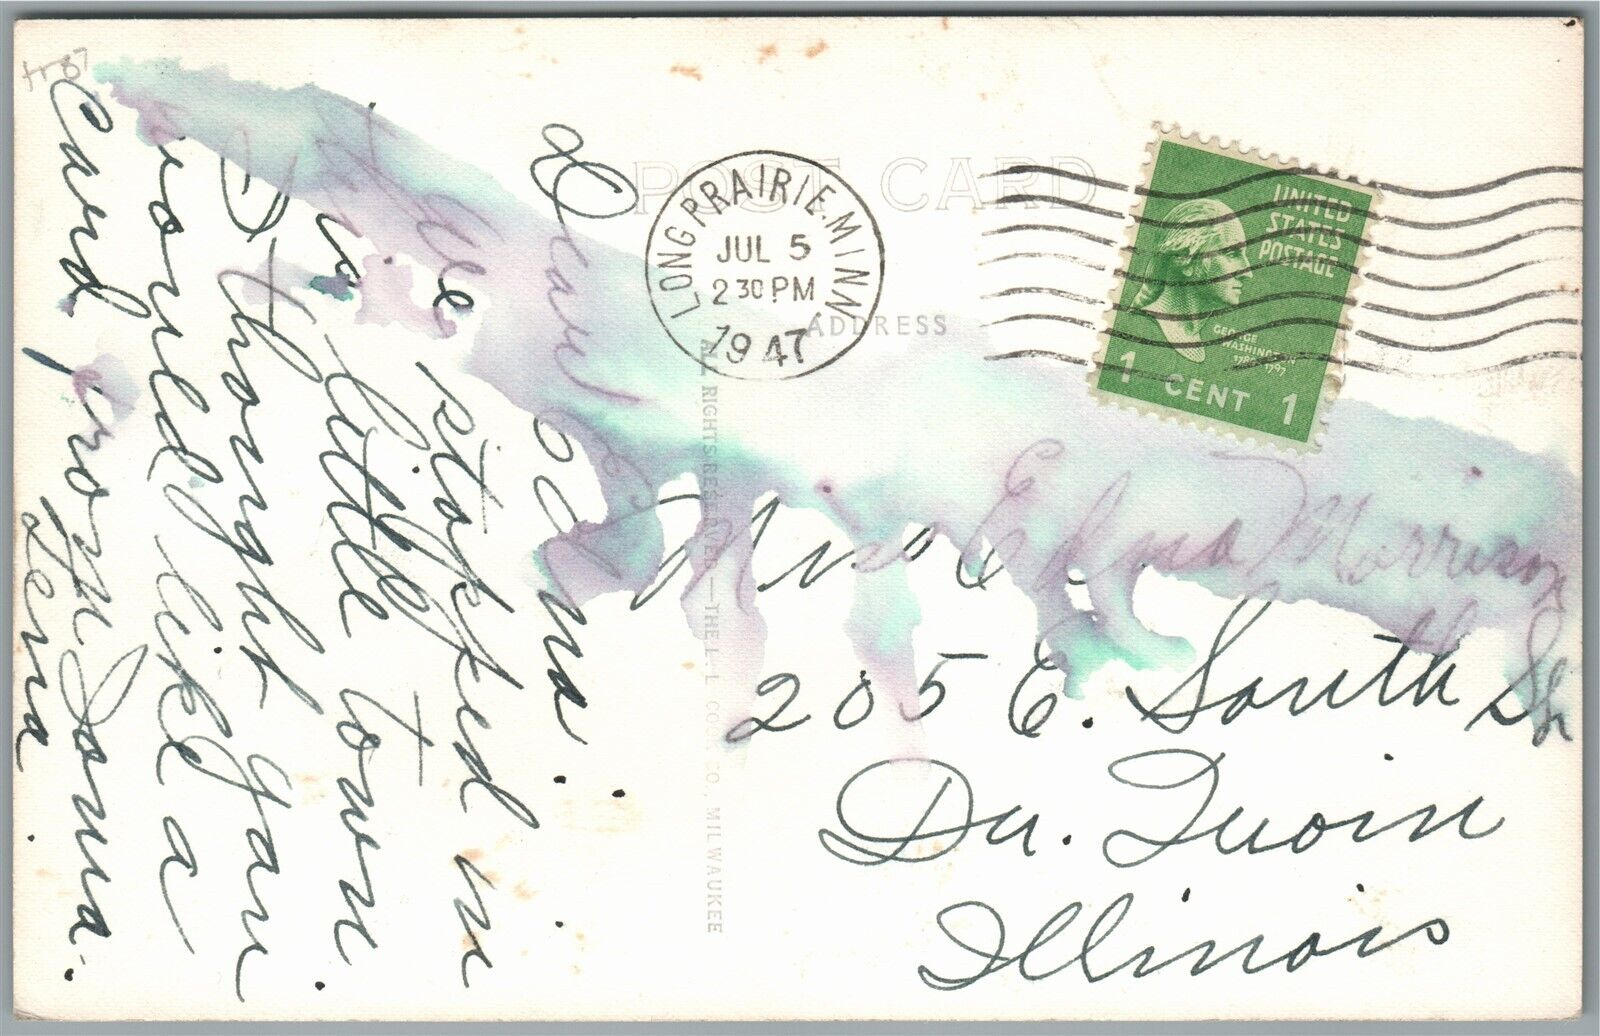 tr87
POST CARD
LONG PRAIRIE, MINN.
JUL 5
2 30 PM
1947
UNITED
STATES
POSTAGE
GEORGE
WASHINGTON
1789-1797
1 CENT 1
ADDRESS
Dear Edna.
We stopped in
little town.
thought you
would like a
Card from
Lena
ALL RIGHTS RESERVED—THE L.L. COOK CO., MILWAUKEE
Mrs Edna Morrison
205 E. South St
Du. Quoin
Illinois